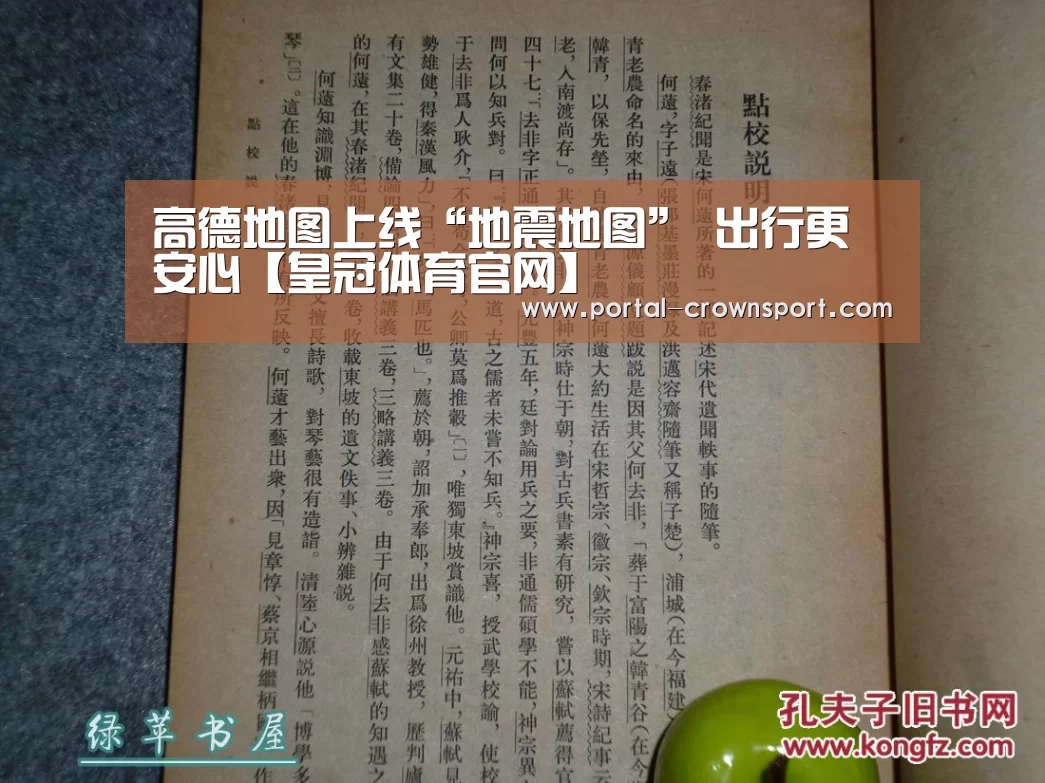 高德地图上线“地震地图” 出行更
安心【皇冠体育官网】
www.portal-crownsport.com
點校説明
春渚紀聞是宋何薳所著的一記述宋代遺聞軼事的隨筆。
何薳，字子遠（張邦基墨莊漫及洪邁容齋隨筆又稱子楚），浦城（在今福建）
青老農命名的來由，源儀顧題跋説是因其父何去非，「葬于富陽之韓青谷（在今
韓青，以保先塋，自青老農」。何薳大約生活在宋哲宗、徽宗、欽宗時期，宋詩紀事云
老，人南渡尚存」。其神宗時仕于朝，對古兵書素有研究，嘗以蘇軾薦得官
四十七：「去非字正通元豐五年，廷對論用兵之要，非通儒碩學不能，神宗異
問何以知兵對。曰：道，古之儒者未嘗不知兵。』神宗喜，授武學校諭，使校
于去非爲人耿介，「不苟合，公卿莫爲推轂」〔一〕，唯獨東坡賞識他。元祐中，蘇軾見
勢雄健，得秦漢風力」，曰：「馬匹也。」，薦於朝，詔加承奉郎，出爲徐州教授，歷判廬
有文集二十卷，備論四講義三卷，三略講義三卷。由于何去非感蘇軾的知遇之
的何薳，在其春渚紀聞卷，收載東坡的遺文佚事、小辨雜説。
何薳知識淵博，見又擅長詩歌，對琴藝很有造詣。清陸心源説他「博學多
琴」〔二〕。這在他的春渚所反映。何薳才藝出衆，因「見章惇、蔡京相繼柄國作
點校説
绿苹书屋
孔夫子旧书网
www.kongfz.com